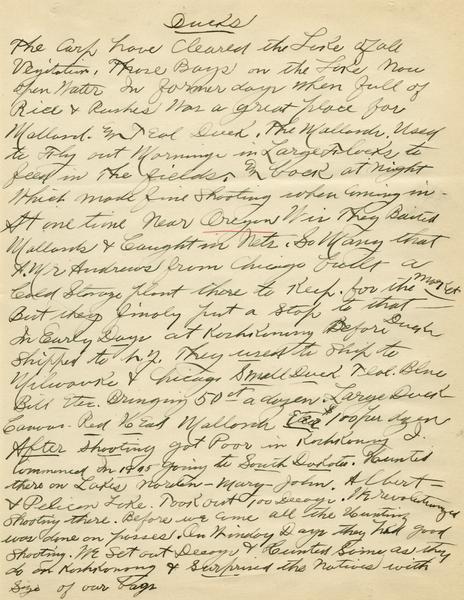 Ducks
The Carp have Cleared the Lake of all
Vegitation. Those Bays on the Lake Now
open Water In former days when full of
Rice & Rushes Was a great place for
Mallard. & Teal Duck. The Mallards. Used
to Fly out Mornings in Large Flocks to
feed in the fields. & back at Night
Which made fine Shooting when Coming in-
At one time Near Oregon Wis They Baited
Mallards & Caught in Nets. So Many that
A Mr Andrews from Chicago built a
Cold Storage Plant there to Keep. for the Market
But they finaly put a Stop to that-
In Early Days at Koshkonong Before Ducks
Shipped to N.Y. They used to Ship to
Milwaukee & Chicago Small Duck Teal. Blue
Bill Etc. Bringing 50 cts a dozen. Large Duck
Canvas. Red Head Mallard $1.00 per dozen
After Shooting got Poor in Koshkonong I.
Commenced In Going to South Dakota. Hunted
there on Lakes Norden- Mary- John. Albert-
& Pelican Lake. Took out 100 Decoys. We revolutionized
Shooting there. Before we came all the Hunting
was done on passes. On Windy Days they had good
Shooting. We Set out Decoys & Hunted Same as they
do on Koshkonong & Surprised the Natives with
Size of our bags